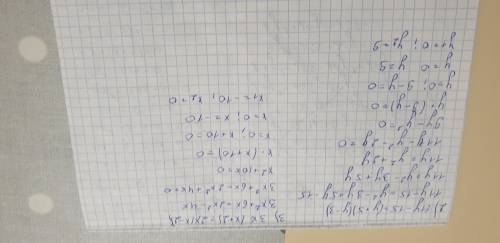 2) 11y-15=(y+5)(y-3)
11y-15=y²-3y+5y-15
11y=y²-3y+5y
11y=y²+2y
11y-y²-2y=0
9y-y²=0
y·(9-y)=0
y=0; 9-y=0
y=0 y=9
y1=0; y2=9
3) 3x(x+2)=2x(x-2)
3x²+6x=2x²-4x
3x²+6x-2x²+4x=0
x²+10x=0
x·(x+10)=0
x=0; x+10=0
x=0; x=-10
x1=-10; x2=0